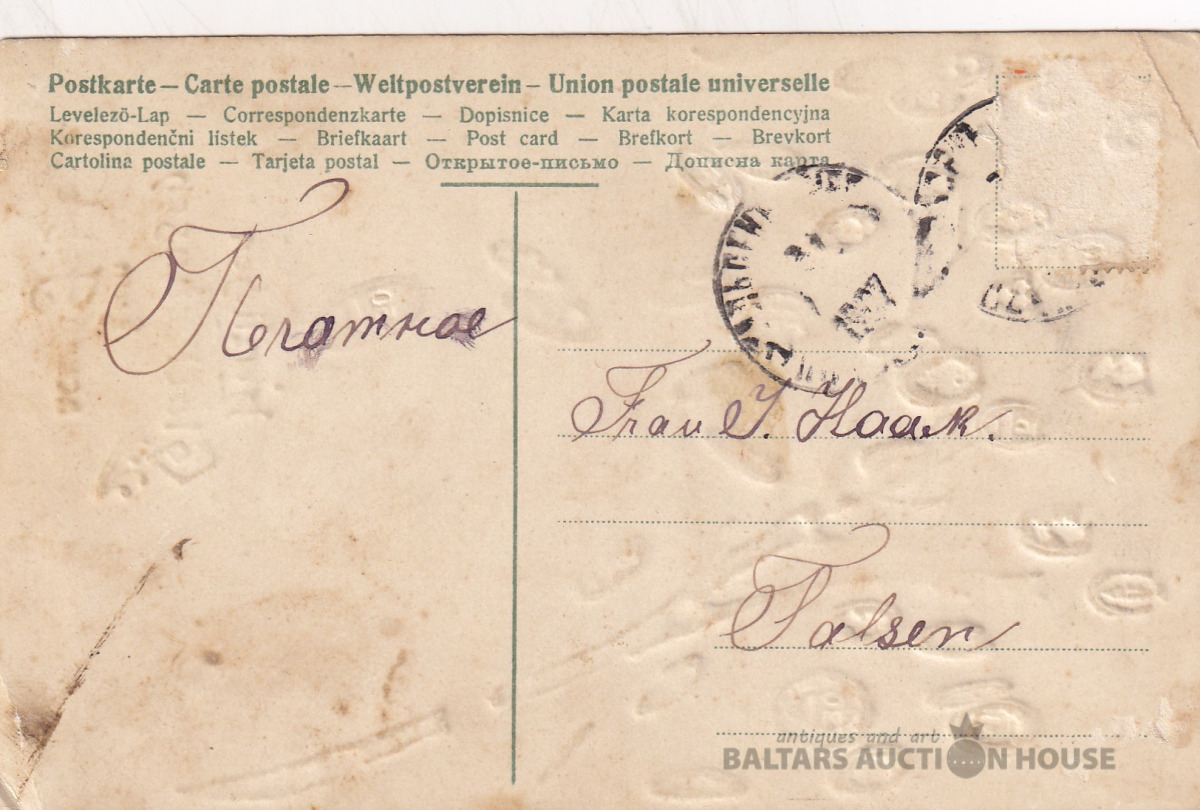 Postkarte — Carte postale — Weltpostverein — Union postale universelle
Levelező-Lap — Correspondenzkarte — Dopisnice — Karta korespondencyjna
Korespondenčni lístek — Briefkaart — Post card — Brefkort — Brevkort
Cartolina postale — Tarjeta postal — Открытое-письмо — Дописна карта
Печатное
1907
Frau J. Haak.
Talsen
antiques and art
BALTARS AUCTION HOUSE